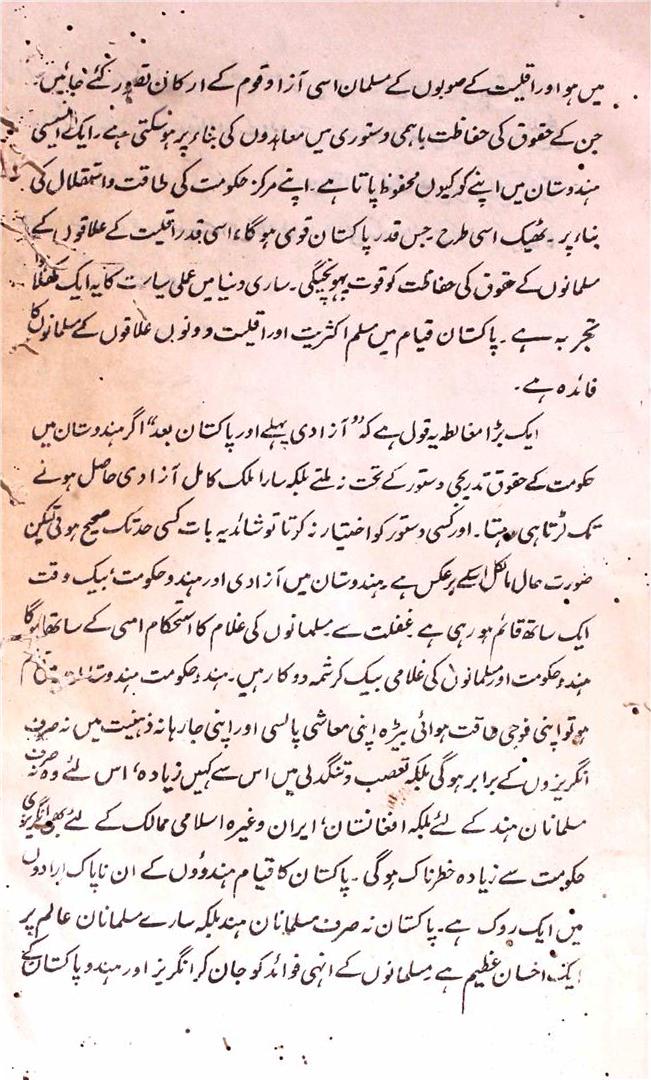 میں ہو اور اقلیت کے صوبوں کے مسلمان اسی آزاد قوم کے ارکان تصور کئے جائیں۔
جن کے حقوق کی حفاظت باہمی دستوری میں معاہدوں کی بناء پر ہو سکتی ہے۔ ایک ایسی
ہندوستان میں اپنے کو کیوں محفوظ پاتا ہے۔ اپنے مرکز حکومت کی طاقت و استقلال کی
بناء پر۔ ٹھیک اسی طرح جس قدر پاکستان قوی ہوگا، اسی قدر اقلیت کے علاقوں کے
مسلمانوں کے حقوق کی حفاظت کو قوت پہونچیگی۔ ساری دنیا میں عملی سیاست کا یہ ایک کھلا
تجربہ ہے۔ پاکستان قیام میں مسلم اکثریت اور اقلیت دونوں علاقوں کے مسلمانوں کا
فائدہ ہے۔
ایک بڑا مغالطہ یہ قول ہے کہ "آزادی پہلے اور پاکستان بعد" اگر ہندوستان میں
حکومت کے حقوق تدریجی دستور کے تحت نہ ملتے بلکہ سارا ملک کامل آزادی حاصل ہونے
تک لڑتا ہی رہتا۔ اور کسی دستور کو اختیار نہ کرتا تو شائد یہ بات کسی حد تک صحیح ہوتی لیکن
صورت حال بالکل اسکے برعکس ہے۔ ہندوستان میں آزادی اور ہندو حکومت، بیک وقت
ایک ساتھ قائم ہو رہی ہے غفلت سے مسلمانوں کی غلام کا استحکام اسی کے ساتھ ہوگا
ہندو حکومت اور مسلمانوں کی غلامی بیک کرشمہ دو کار ہیں۔ ہندو حکومت ہندوستان میں قائم
ہو تو اپنی فوجی طاقت ہوائی بیڑہ اپنی معاشی پالسی اور اپنی جارہانہ ذہنیت میں نہ صرف
انگریزوں کے برابر ہوگی بلکہ تعصب و تنگدلی میں اس سے کہیں زیادہ، اس لئے وہ نہ صرف
مسلمانان ہند کے لئے بلکہ افغانستان، ایران وغیرہ اسلامی ممالک کے لئے بھی انگریزی
حکومت سے زیادہ خطرناک ہوگی۔ پاکستان کا قیام ہندوؤں کے ان ناپاک ارادوں
میں ایک روک ہے۔ پاکستان نہ صرف مسلمانان ہند بلکہ سارے مسلمانان عالم پر
ایک احسان عظیم ہے مسلمانوں کے انہی فوائد کو جان کر انگریز اور ہندو پاکستان کے